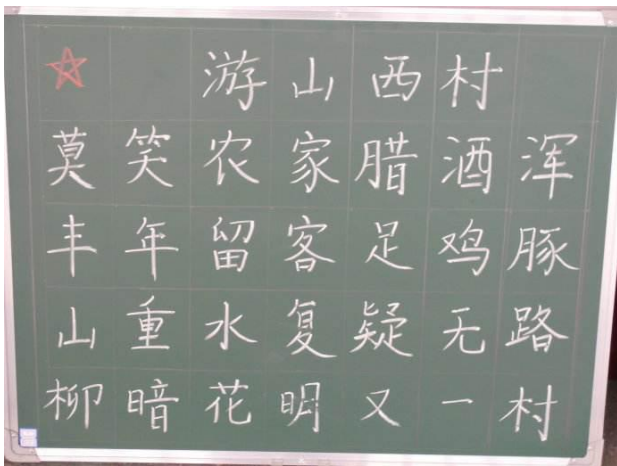 游山西村
莫笑农家腊酒浑
丰年留客足鸡豚
山重水复疑无路
柳暗花明又一村